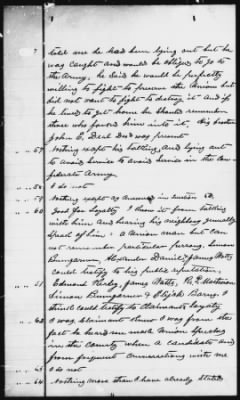 told me he had been lying out but he
was caught and would be obliged to go to
the Army, he said he would be perfectly
willing to fight to preserve the Union but
did not want to fight to destroy it and if
he lived to get home he should remember
those who forced him into it, his brother
John C. Deal Decd was present
" 57 Nothing except his talking, and lying out
to avoid service to avoid service in the Con
federate Army.
" 58 I do not
" 59 Nothing except as answered in question 52.
" 60 Good for loyalty I know it from talking
with him and hearing his neighbors generally
speak of him as a Union man but can
not remember particular persons, Simon
Bumgarner, Alexander Daniel & James Watts
could testify to his public reputation,
" 61 Edmund Herby, James Watts, R. P. Matheson
Simon Bumgarner & Elijah Barns, I
think could testify to claimants loyalty
" 62 I was, claimant knew I was from the
fact he heard me make Union Speeches
in this County when a Candidate and
from frequent conversations with me
" 63 I do not
" 64 Nothing more than I have already stated